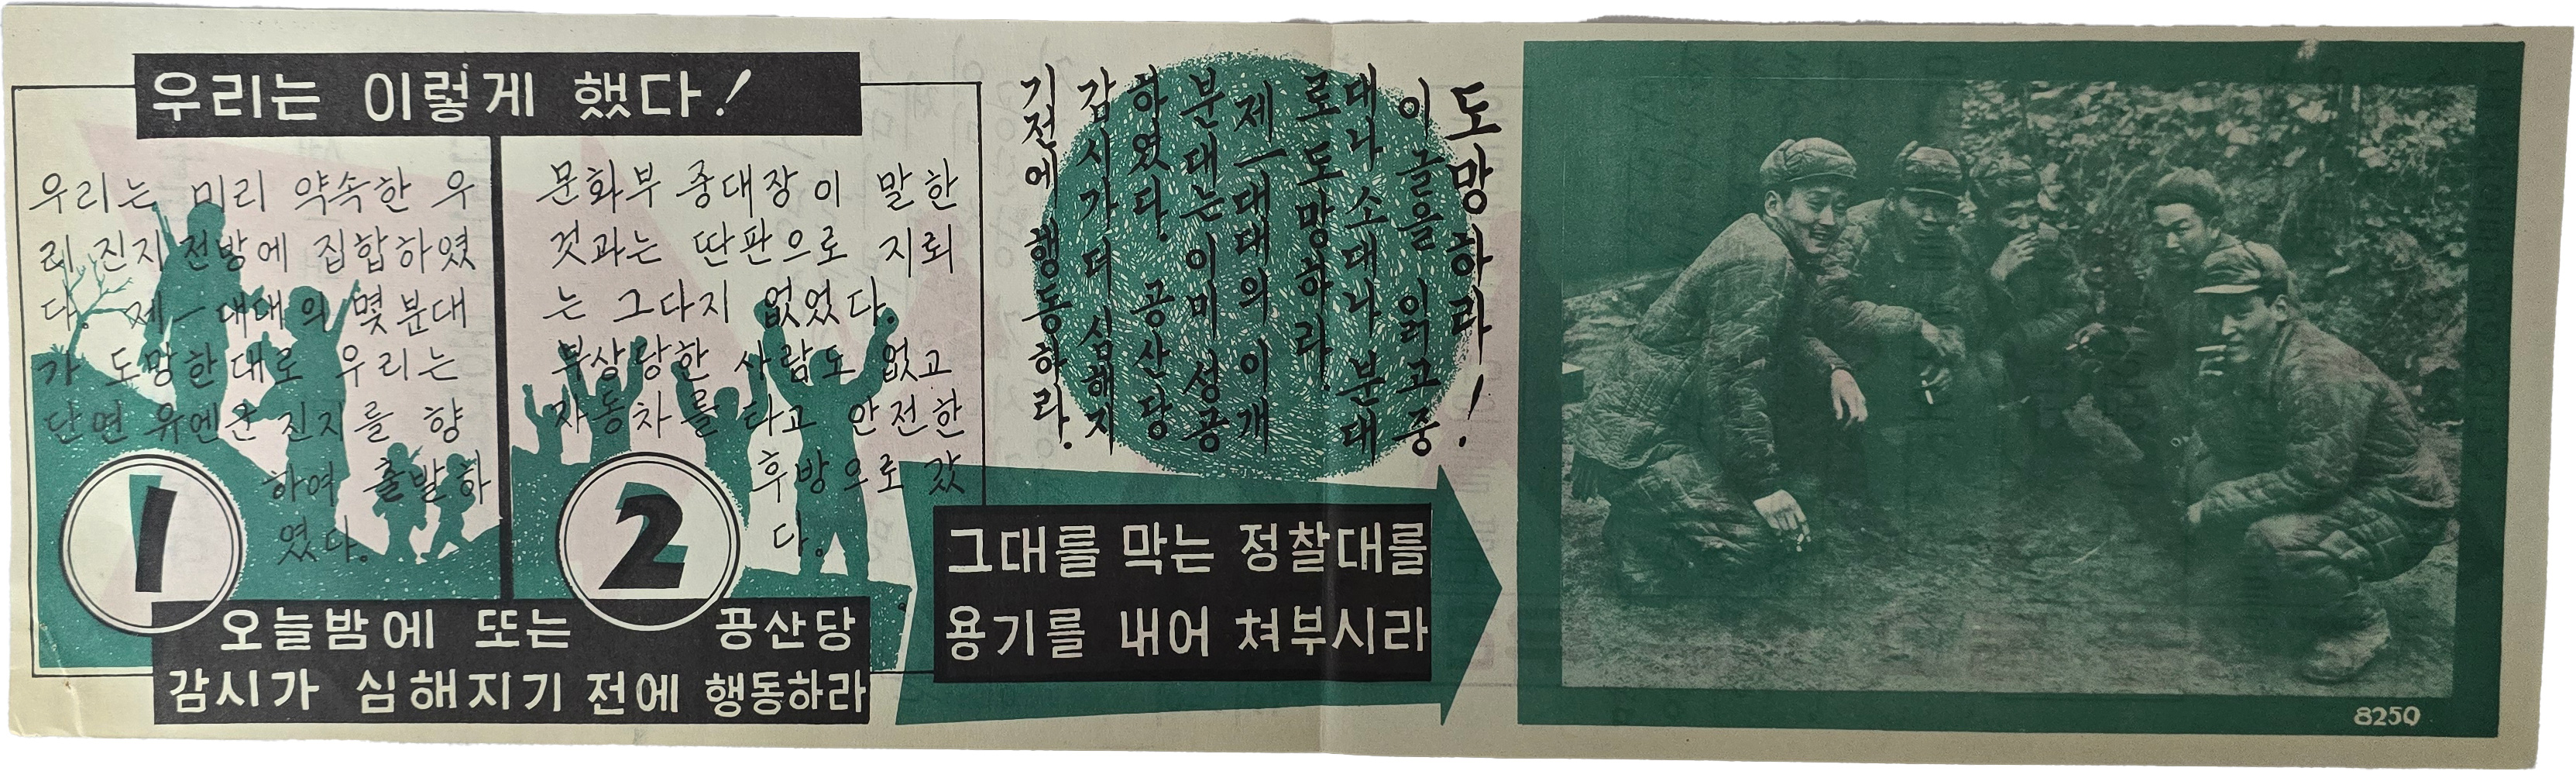 우리는 이렇게 했다!
우리는 미리 약속한 우
리 진지 전방에 집합하였
다. 제一대대의 몇 분대
가 도망한대로 우리는
단연 유엔군 진지를 향
하여 출발하
였다.
1
문화부 중대장이 말한
것과는 딴판으로 지뢰
는 그다지 없었다.
부상당한 사람도 없고
자동차를 타고 안전한
후방으로 갔
다.
2
오늘밤에 또는 공산당
감시가 심해지기 전에 행동하라
도망하라!
이 글을 읽고 중
대나 소대나 분대
로 도망하라.
제一대대의 이개
분대는 이미 성공
하였다. 공산당
감시가 더 심해지
기전에 행동하라.
그대를 막는 정찰대를
용기를 내어 쳐부시라
8250